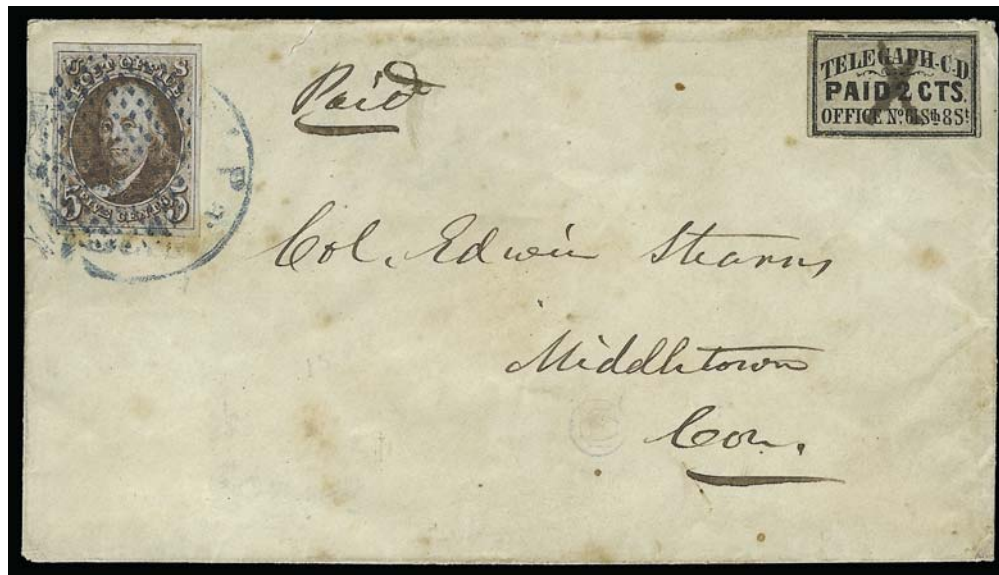 POST OFFICE
5 FIVE CENTS 5
Paid
TELEGAPH-C.D.
PAID 2 CTS.
OFFICE Nº 6 Sth 8 St
Col. Edwin Stearns
Middletown
Con.